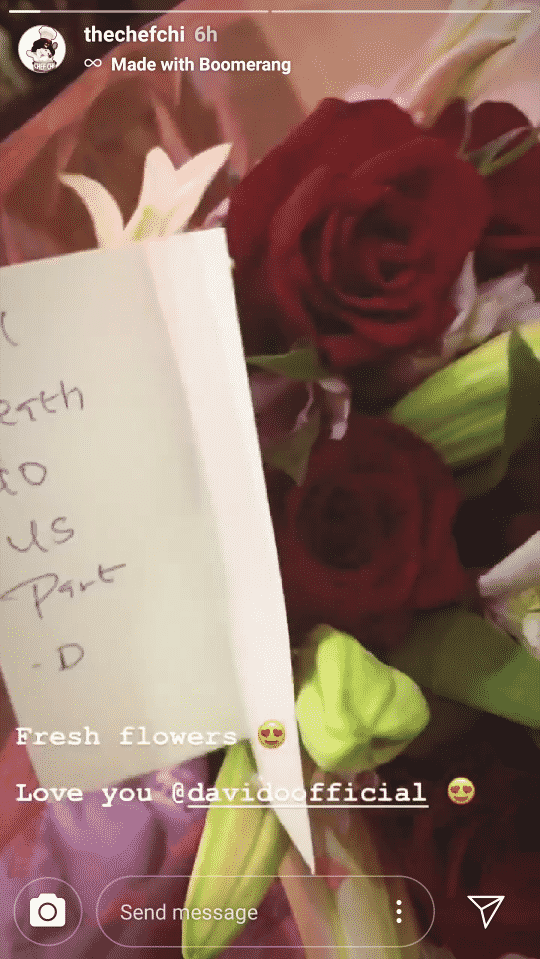 thechefchi 6h
∞ Made with Boomerang
eath
do
us
Part
-D
Fresh flowers 😍
Love you @davidoofficial 😍
Send message